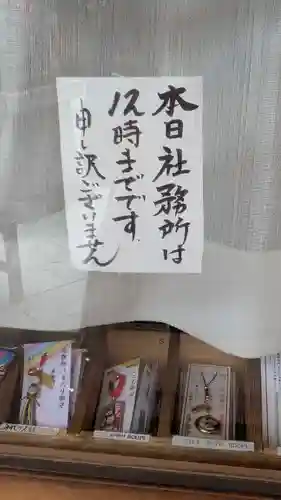 本日社務所は
12時までです。
申し訳ございません